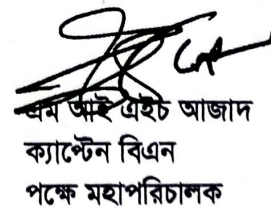 এম আই এইচ আজাদ
ক্যাপ্টেন বিএন
পক্ষে মহাপরিচালক